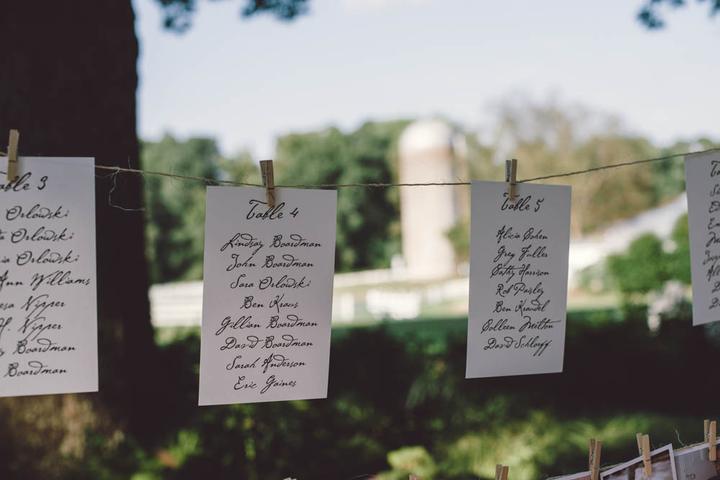 Table 3
Orlowski
Orlowski
Orlowski
Ann Williams
Nyper
Nyper
Boardman
Boardman
Table 4
Lindsay Boardman
John Boardman
Sara Orlowski
Ben Kraus
Gillian Boardman
David Boardman
Sarah Anderson
Eric Gaines
Table 5
Alicia Cohen
Greg Fuller
Cathy Harrison
Rob Paisley
Ben Kraudel
Colleen Melton
David Schluff